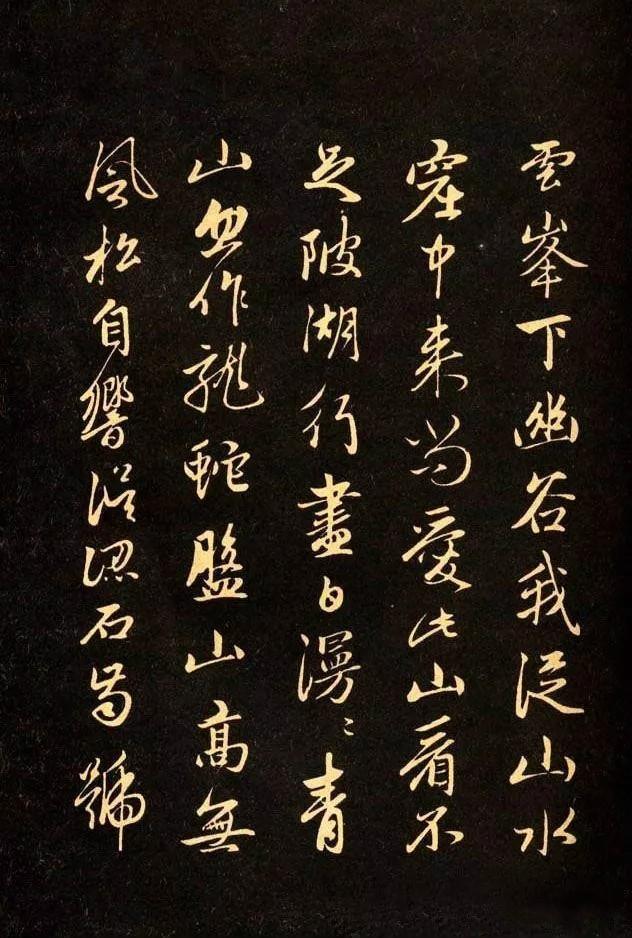 雲峯下幽谷我從山水
窟中來尚愛此山看不
足陂湖行盡白漫〻青
山忽作龍蛇盤山高無
風松自響誤認石齒號